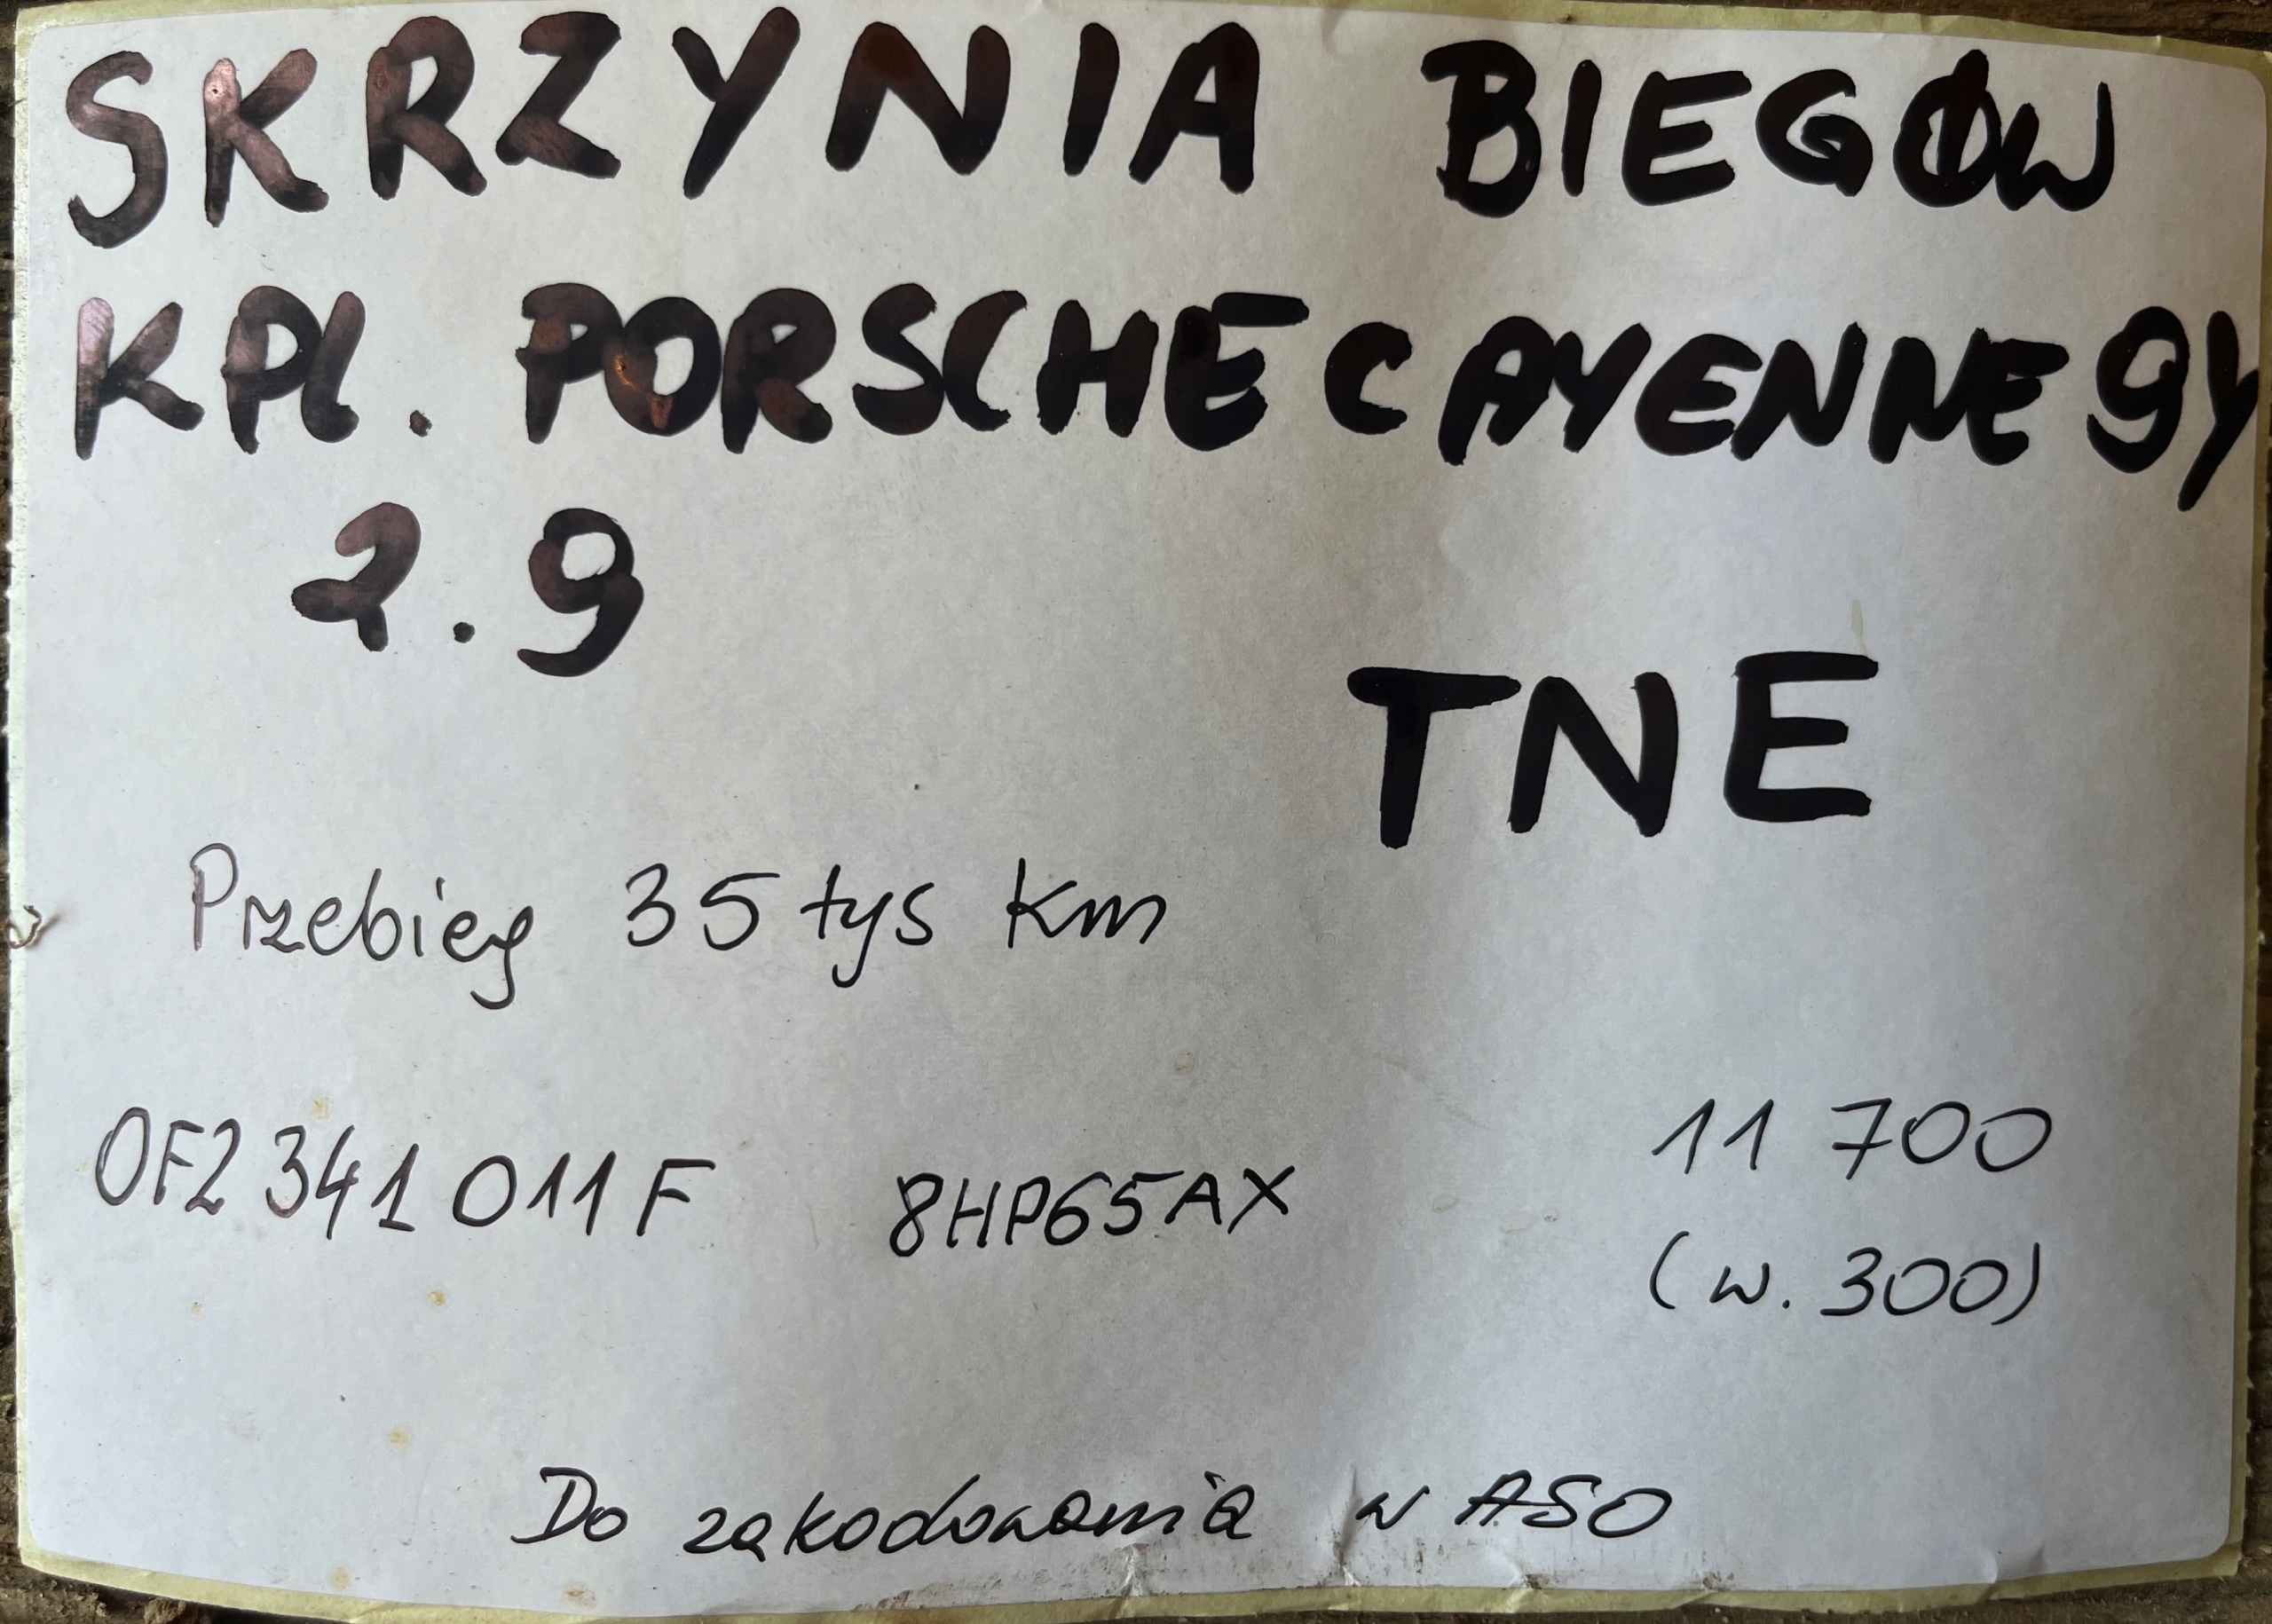 SKRZYNIA BIEGÓW
KPL. PORSCHE CAYENNE 9Y
2.9
TNE
Przebieg 35 tys km
0F2 341 011 F 8HP65AX 11 700
(w. 300)
Do zakodowania w ASO